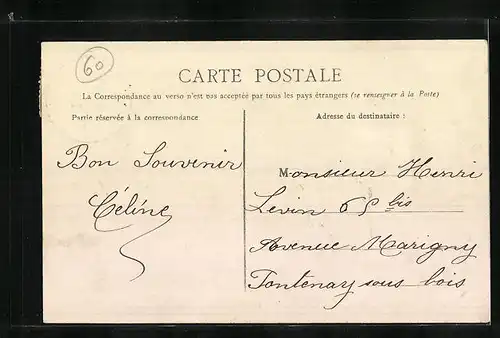 60
CARTE POSTALE
La Correspondance au verso n'est pas acceptée par tous les pays étrangers (se renseigner à la Poste)
Partie réservée à la correspondance
Adresse du destinataire :
Bon Souvenir
Céline
Monsieur Henri
Levin 65 bis
Avenue Marigny
Fontenay sous bois